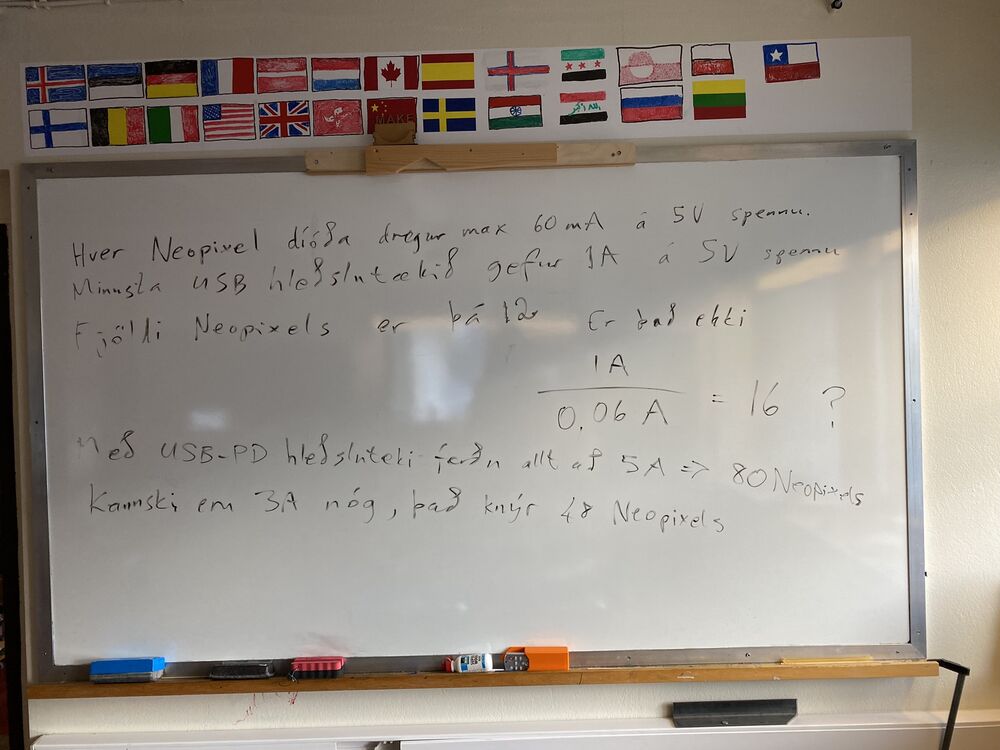 MAKE
Hver Neopixel díóða dregur max 60 mA á 5V spennu.
Minnsta USB hleðslutækið gefur 1A á 5V spennu
Fjöldi Neopixels er þá 12 Er það ekki
1A
0,06 A = 16 ?
Með USB-PD hleðslutæki færðu allt að 5A => 80 Neopixels
Kannski eru 3A nóg, það knýr 48 Neopixels